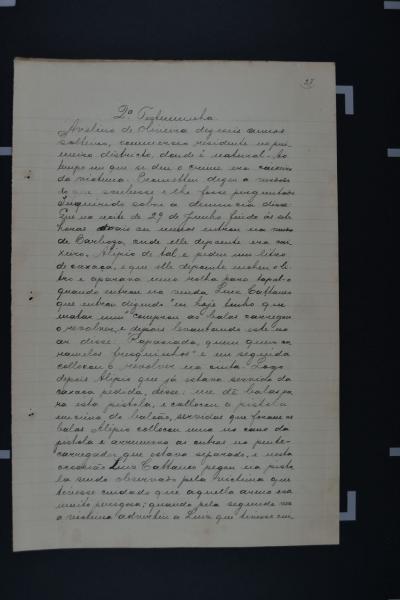 27
2ª Testemunha
Avelino de Oliveira dezeseis annos
solteiro, commercio residente no pri-
meiro districto, donde é natural. Ao
tempo em que se deu o crime era caixeiro
da victima. Prometteu dizer a verda-
de que soubesse e lhe fosse perguntado
Inquirido sobre a denuncia disse
Que na noite de 29 de Junho findo ás oito
horas mais ou menos entrou na venda
de Barbosa, onde elle depoente era cai-
xeiro, Alipio de tal e pediu um litro
de caxaça, e que elle depoente encheu o li-
tro e aparava uma rolha para tapal-o
quando entrou na venda Luiz Cattaneo
que entrou dizendo "eu hoje tenho que
matar um" comprou as balas carregou
o revolver e depois levantando este no
ar disse: quem quer ca-
ramelos fresquinhos" e em seguida
collocou o revolver na cinta. Logo
depois Alipio que já estava servido da
caxaça pedida, disse: me dê balas pa-
ra esta pistola, e collocou a pistola
em cima do balcão, servidas que foram as
balas Alipio collocou uma no cano da
pistola e arrumou as outras no pente
carregador que estava separado, e nesta
occasião Luiz Cattaneo pegou na pisto-
la sendo observado pela victima que
tivesse cuidado que aquella arma era
muito perigosa; quando pela segunda vez
a victima advertiu a Luiz que tivesse cui-